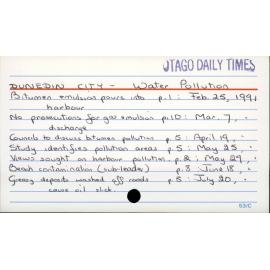 OTAGO DAILY TIMES
DUNEDIN CITY - Water Pollution
Bitumen emulsion pours into p.1 : Feb. 25, 1991
harbour
No prosecutions for gas emulsion p.10 : Mar. 7, "
discharge
Councils to discuss bitumen pollution p.5 : April 19, "
Study identifies pollution areas p.5 : May 25, "
Views sought on harbour pollution p.2 : May 29, "
Beach contamination (sub-leader) p.8 : June 18, "
Greasy deposits washed off roads p.5 : July 20, "
cause oil slick.
53/C